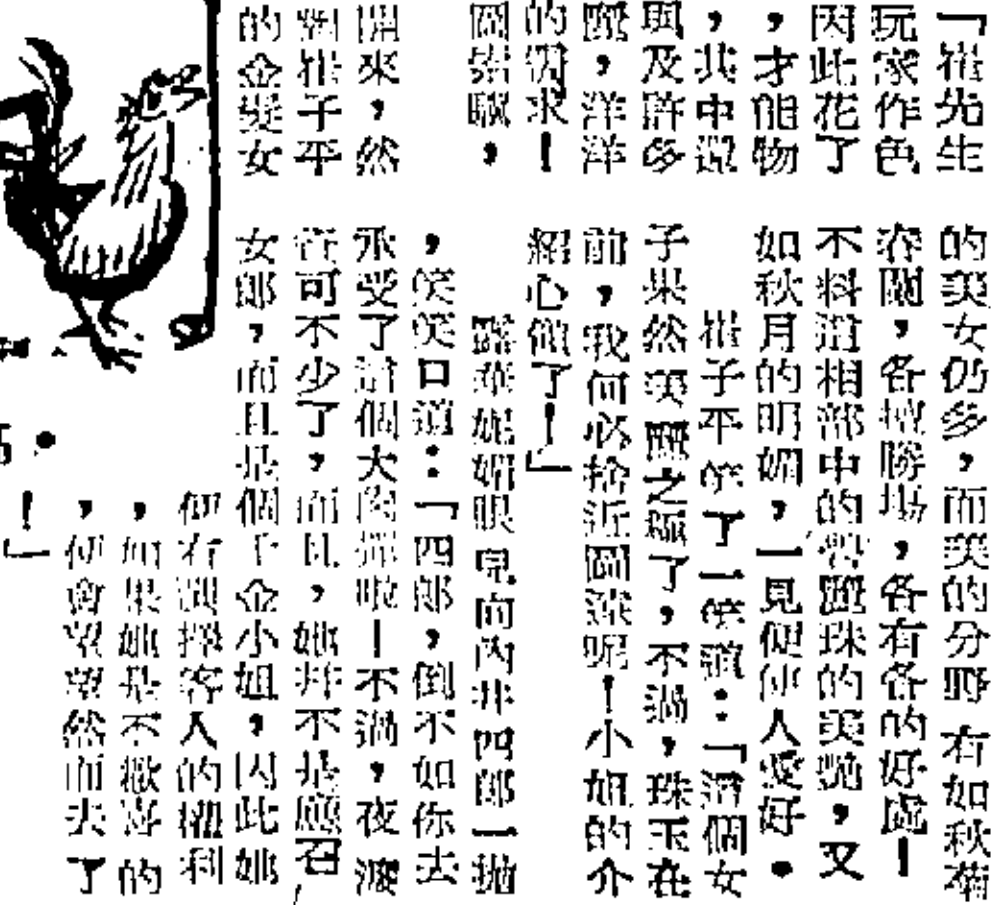 「崔先生
玩家作色
因此花了
，才能物
，其中還
與及許多
，洋洋
的求！
開來，然
對崔子平
的金髮女
的美女仍多，而美的分野有如秋菊
春蘭，各擅勝場，各有各的好處！
不料這相部中的碧麗珠的美艷，又
如秋月的明媚，一見便使人愛好。
崔子平笑了一笑道：「這個女
子果然美麗之極了，不過，珠玉在
前，我何必捨近圖遠呢！小姐的介
紹心領了！」
露華妮媚眼兒向內井四郎一拋
，笑笑口道：「四郎，倒不如你去
承受了這個大肉彈啦！不過，夜渡
資可不少了，而且，她并不是應召
女郎，而且是個千金小姐，因此她
便有選擇客人的權利
，如果她是不歡喜的
，便會望望然而去了
！」